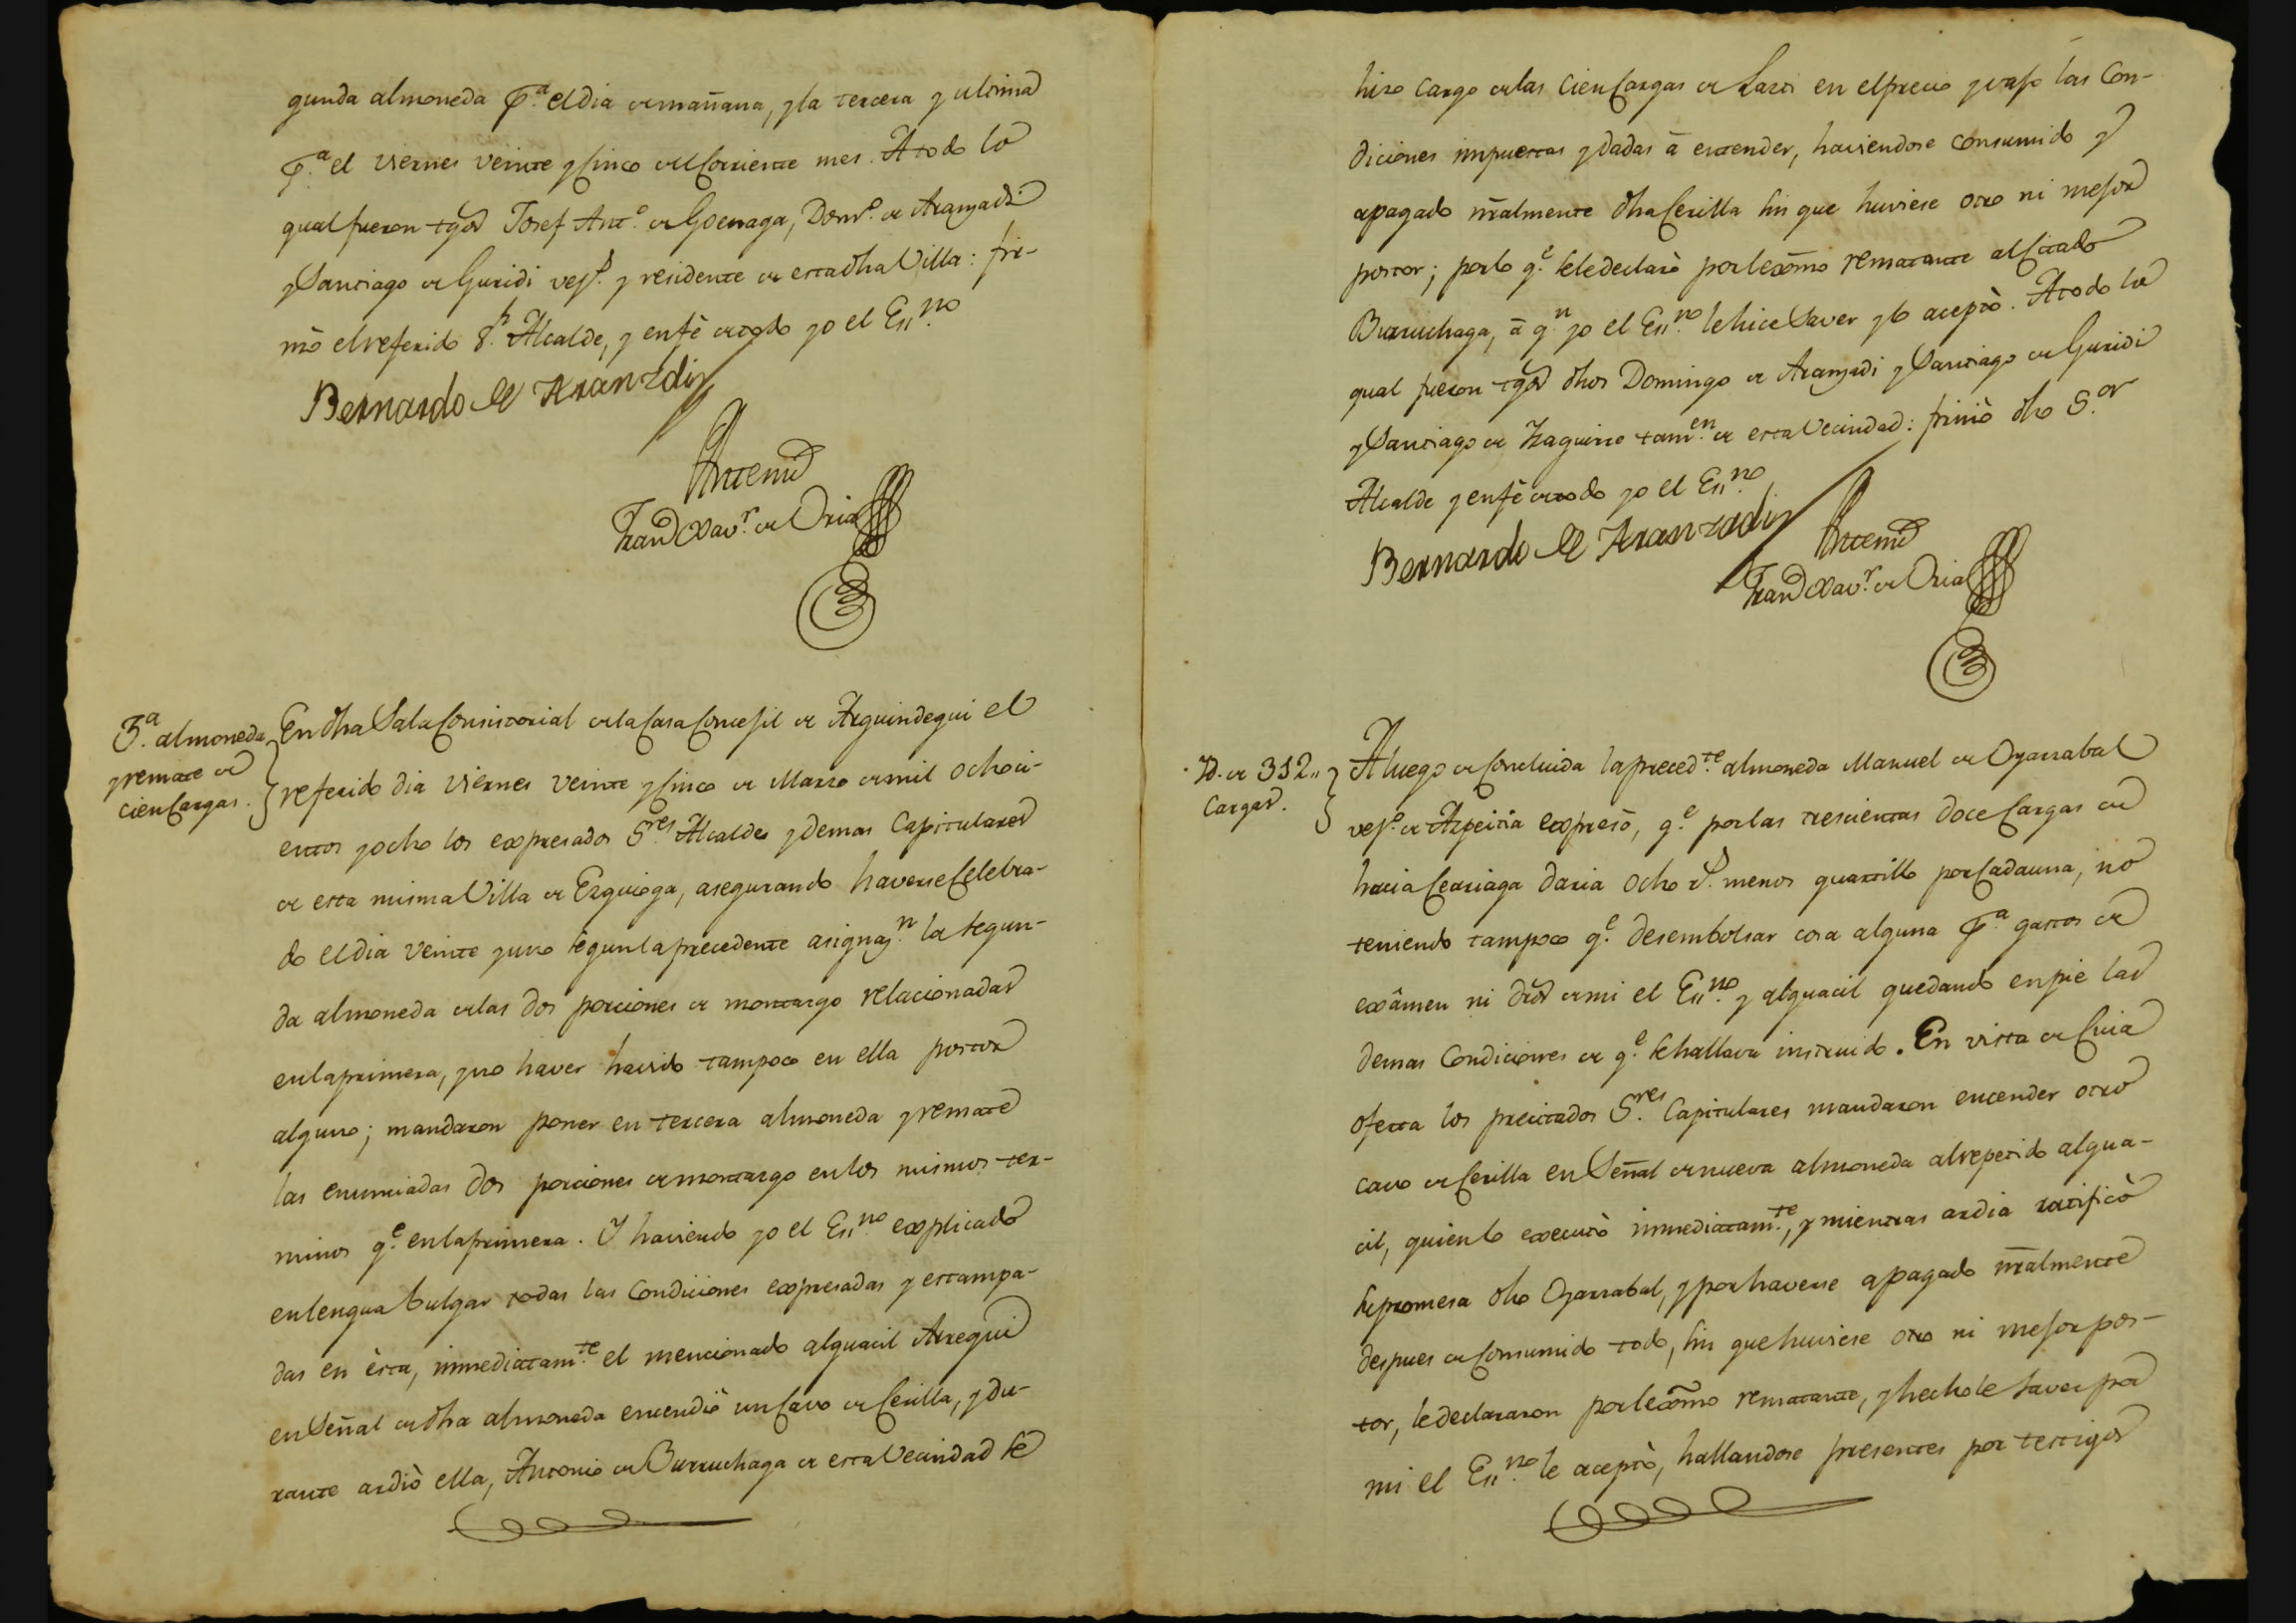 gunda almoneda p.ª el dia de mañana, y la tercera y ultima
p.ª el viernes veinte y cinco del corriente mes. A todo lo
qual fueron tgos Josef Ant.º de Goenaga, Dom.º de Aranzadi
y Santiago de Guridi vez.s y residente de esta dha Villa: fir-
mó el referido S.r Alcalde, y en fè de todo yo el Ess.no
Bernardo de Aranzadi
Antemi
Fran.co Xav.r de Oria
3.ª almoneda
y remate de
cien cargas.
En dha Sala Consistorial de la Casa Concejil de Arguindegui el
referido dia viernes veinte y cinco de Marzo de mil ochoci-
entos y ocho los expresados S.res Alcalde y demas Capitulares
de esta misma Villa de Ezquioga, asegurando haverse celebra-
do el dia veinte y uno segun la precedente asignaz.n la segun-
da almoneda de las dos porciones de montazgo relacionadas
en la primera, y no haver havido tampoco en ella postor
alguno; mandaron poner en tercera almoneda y remate
las enunciadas dos porciones de montazgo en los mismos ter-
minos q.e en la primera. Y haviendo yo el Ess.no explicado
en lengua bulgar todas las condiciones expresadas y estampa-
das en èsta, inmediatam.te el mencionado alguacil Arregui
en señal de dha almoneda encendiò un cavo de cerilla, y du-
rante ardiò ella, Antonio de Burruchaga de esta vecindad se
hizo cargo de las cien cargas de Lazcd en el precio y vajo las con-
diciones impuestas y dadas à entender, haviendose consumido y
apagado nralmente dha cerilla sin que huviese otro ni mejor
postor; por lo q.e se le declarò por lexmo rematante al citado
Burruchaga, à q.n yo el Ess.no le hice saver y lo aceptò. A todo lo
qual fueron tgos dhos Domingo de Aranzadi y Santiago de Guridi
y Santiago de Yzaguirre tam.en de esta vecindad: firmò dho S.or
Alcalde y en fè de todo yo el Ess.no
Bernardo de Aranzadi
Antemi
Fran.co Xav.r de Oria
Yd. de 312..
cargas.
A luego de concluida la preced.te almoneda Manuel de Oyarzabal
vez.º de Azpeitia expresò, q.e por las trescientas doce cargas de
hacia Ceariaga daria ocho r.s menos quartillo por cada una, no
teniendo tampoco q.e desembolsar cosa alguna p.ª gastos de
exâmen ni dros de mi el Ess.no y alguacil quedando en pie las
demas condiciones de q.e se hallava instruido. En vista de cuia
oferta los precitados S.res Capitulares mandaron encender otro
cavo de cerilla en señal de nueva almoneda al repetido algua-
cil, quien lo executò inmediatam.te, y mientras ardia ratificò
su promesa dho Oyarzabal, y por haverse apagado nralmente
despues de consumido todo, sin que huviese otro ni mejor pos-
tor, le declararon por lexmo rematante, y hechole saver por
mi el Ess.no le aceptò, hallandose presentes por testigos